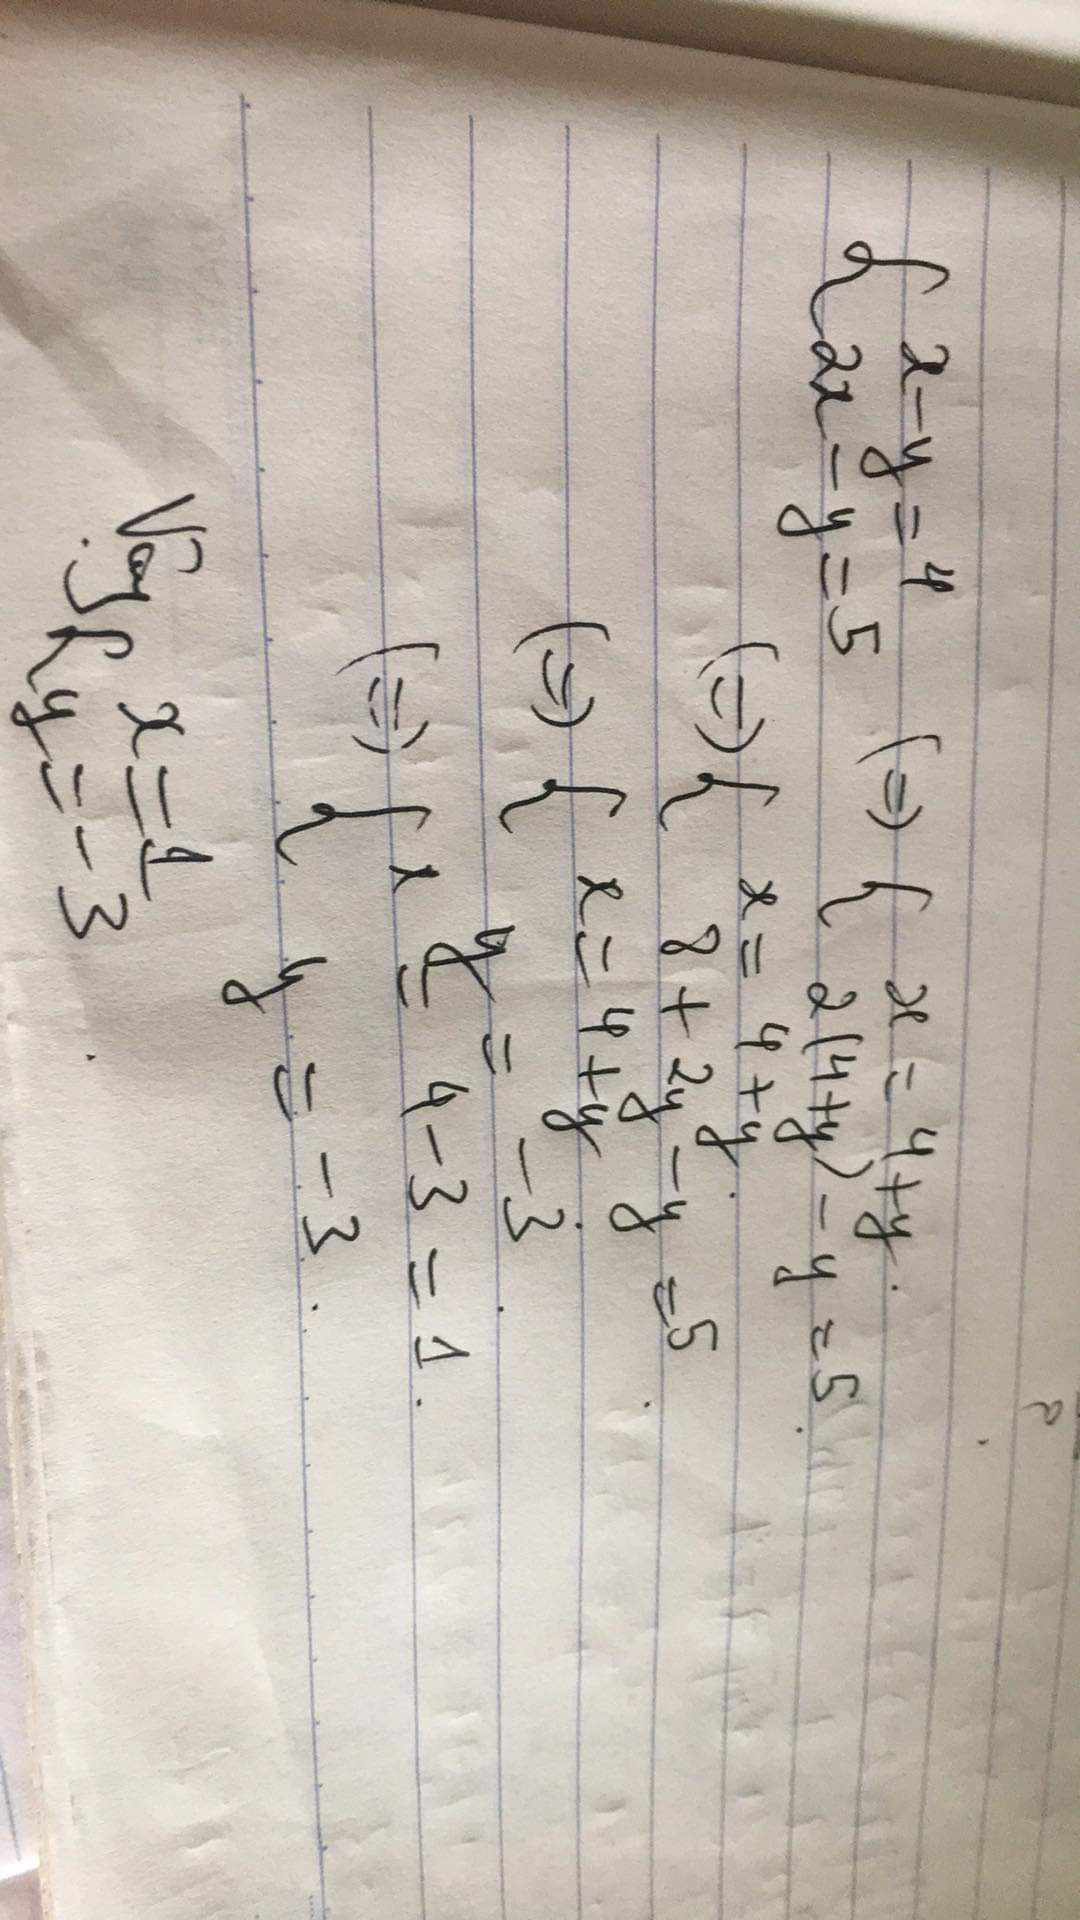 { x-y=4 (=) { x = 4+y.
2x-y=5 2(4+y) - y = 5
(=) { x = 4+y
8 + 2y - y = 5
(=) { x = 4+y
y = -3
(=) { x = 4-3 = 1.
y = -3.
Vậy { x=1
y=-3